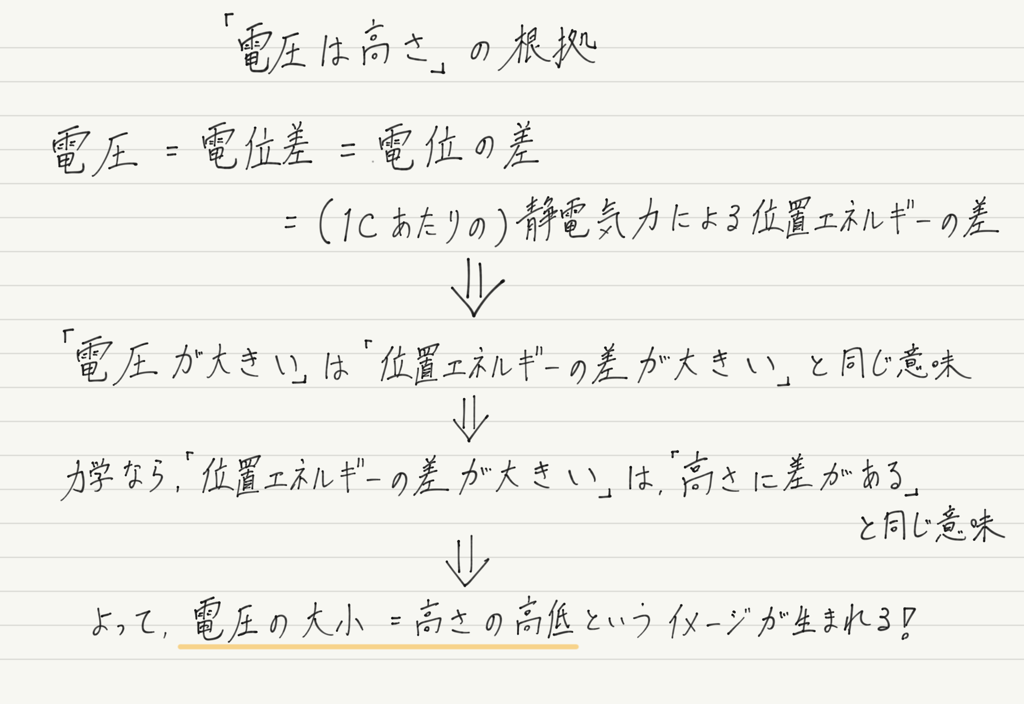 「電圧は高さ」の根拠
電圧 = 電位差 = 電位の差
= (1Cあたりの)静電気力による位置エネルギーの差
⇓
「電圧が大きい」は「位置エネルギーの差が大きい」と同じ意味
⇓
力学なら,「位置エネルギーの差が大きい」は,「高さに差がある」
と同じ意味
⇓
よって, 電圧の大小 = 高さの高低というイメージが生まれる!